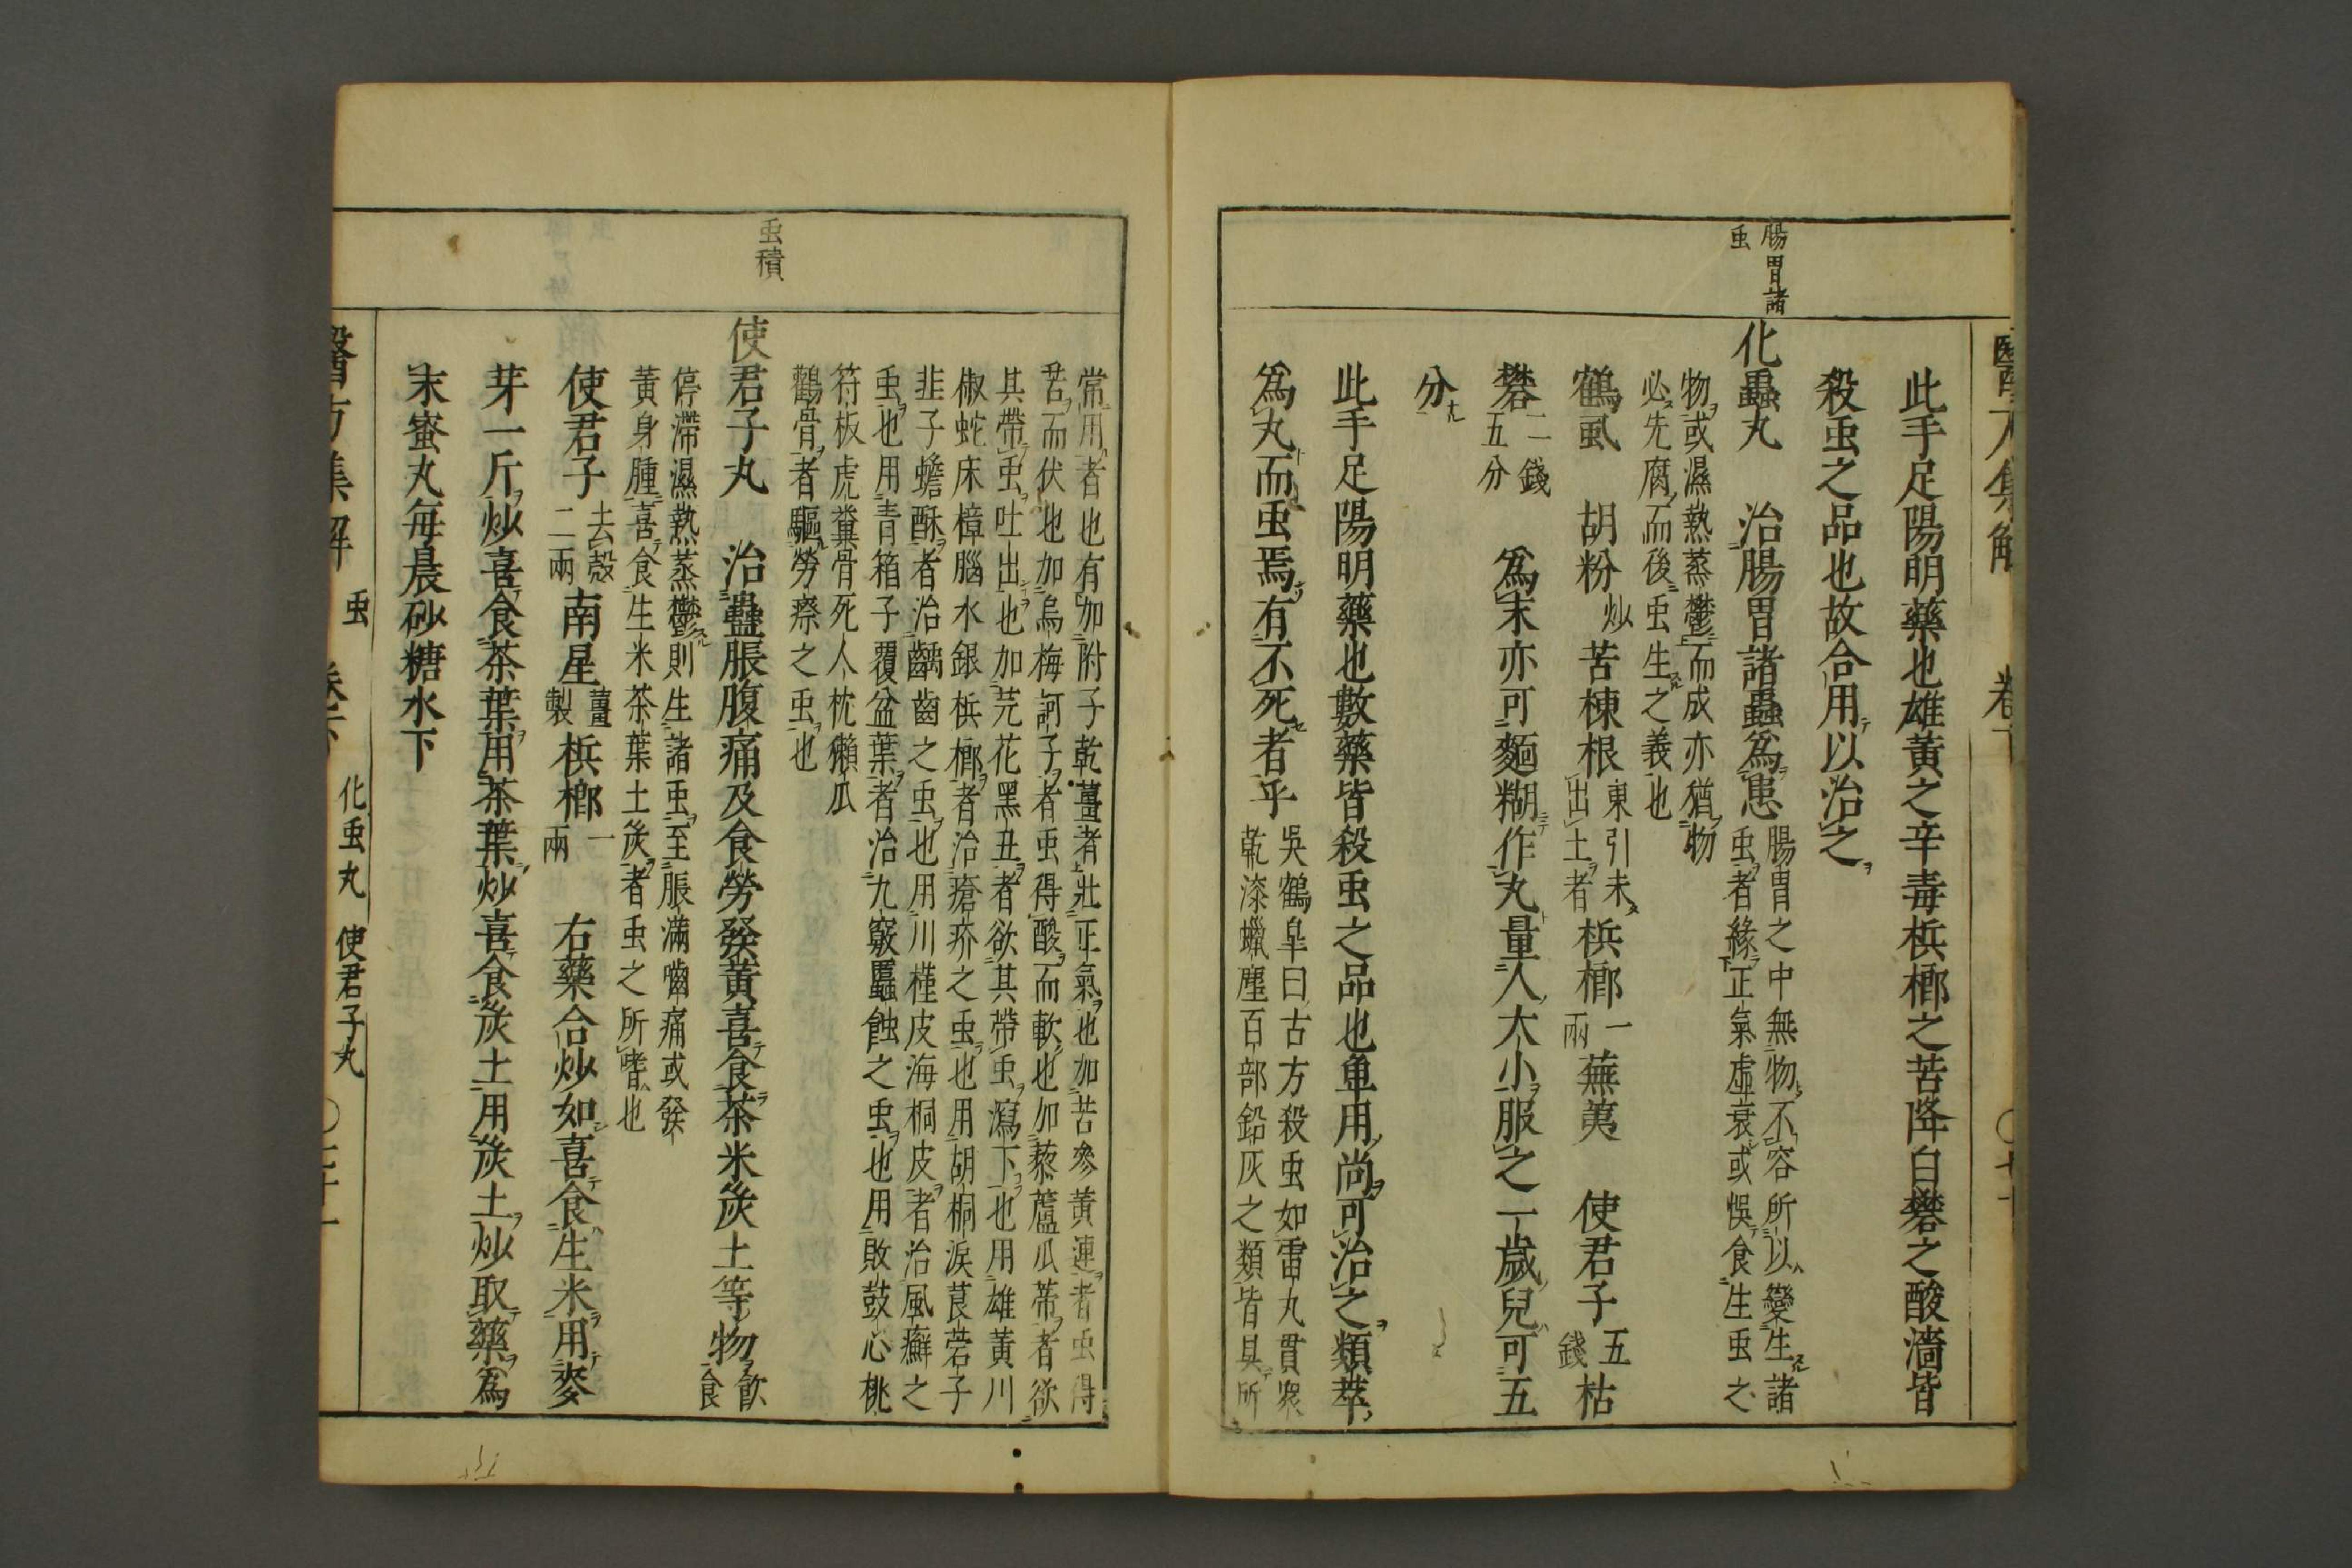 腸胃諸
虫
此手足陽明藥也雄黄之辛毒梹榔之苦降白礬之酸濇皆
殺虫之品也故合用以治之
化蟲丸 治腸胃諸蟲為患 腸胃之中無物不容所以變生諸
虫者緣正氣虛衰或悞食生虫之
物或濕熱蒸鬱而成亦猶物
必先腐而後虫生之義也
鶴虱 胡粉 炒 苦楝根 東引未
出土者 梹榔 一
兩 蕪荑 使君子 五
錢 枯
礬 一錢
五分 為末亦可麵糊作丸量人大小服之一歲兒可五
分
此手足陽明藥也數藥皆殺虫之品也单用尚可治之類萃
為丸而虫焉有不死者乎 吳鶴皐曰古方殺虫如雷丸貫衆
乾漆蠟塵百部鉛灰之類皆其所
虫積
常用者也有加附子乾薑者壯正氣也加苦參黄連者虫得
苦而伏也加烏梅訶子者虫得酸而軟也加藜蘆瓜蒂者欲
其帶虫吐出也加芫花黑丑者欲其帶虫瀉下也用雄黄川
椒蛇床樟腦水銀梹榔者治瘡疥之虫也用胡桐淚莨菪子
韭子蟾酥者治齲齒之虫也用川槿皮海桐皮者治風癬之
虫也用青箱子覆盆葉者治九竅䘌蝕之虫也用敗鼓心桃
符板虎糞骨死人枕獺瓜
鸛骨者驅勞瘵之虫也
使君子丸 治蠱脹腹痛及食勞發黄喜食茶米炭土等物 飲
食
停滯濕熱蒸鬱則生諸虫至脹滿嚙痛或發
黄身腫喜食生米茶葉土炭者虫之所嗜也
使君子 去殼
二兩 南星 薑
製 梹榔 一
兩 右藥合炒如喜食生米用麥
芽一斤炒喜食茶葉用茶葉炒喜食炭土用炭土炒取藥為
末蜜丸每晨砂糖水下
虫 化虫丸 使君子丸